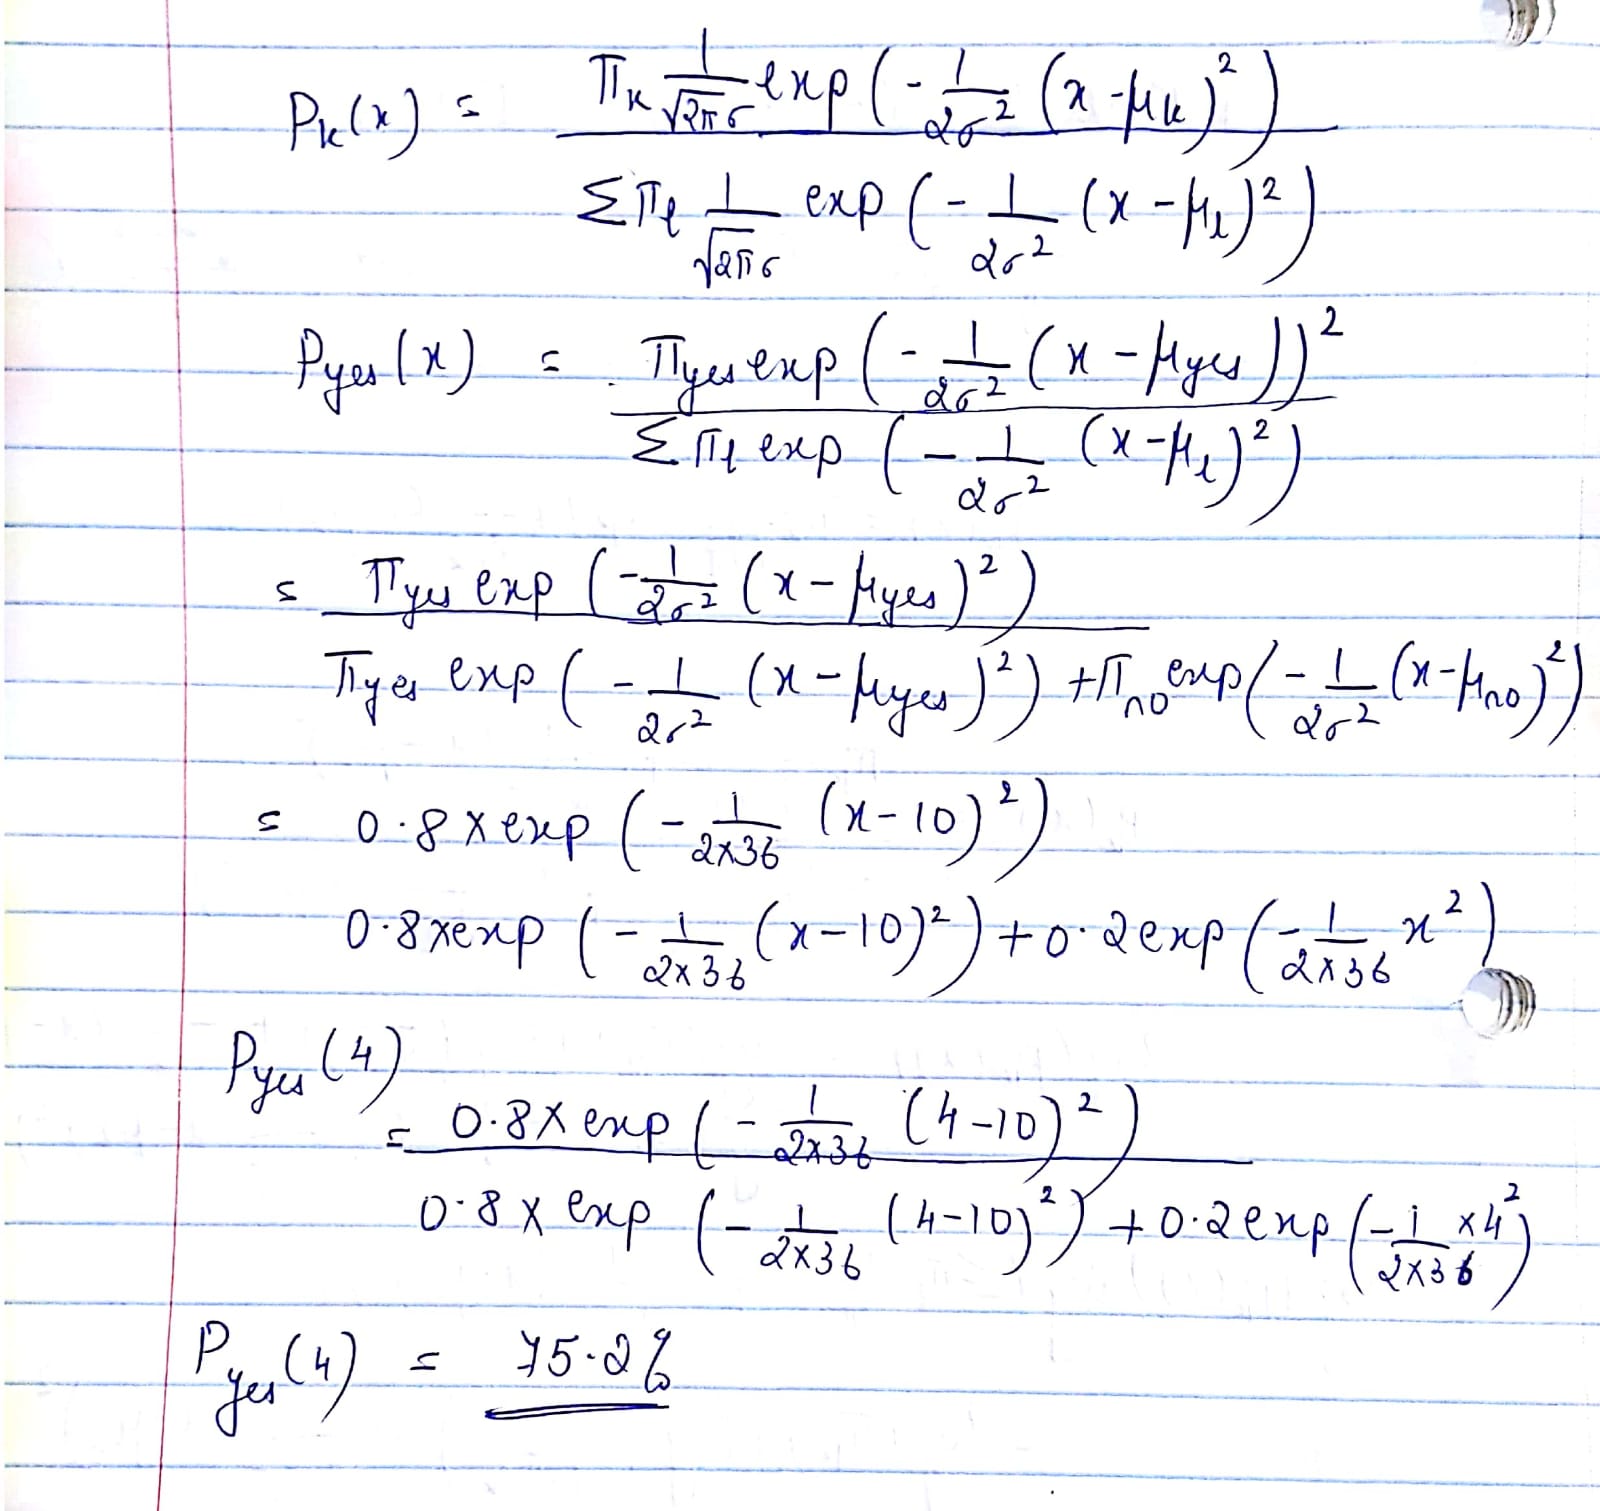 Pk(x) = πk 1/√2πσ exp(-1/2σ² (x-μk)²)
Σπl 1/√2πσ exp(-1/2σ² (x-μl)²)
Pyes(x) = πyes exp(-1/2σ² (x-μyes))²
Σπl exp(-1/2σ² (x-μl)²)
= πyes exp(-1/2σ² (x-μyes)²)
πyes exp(-1/2σ² (x-μyes)²) + πno exp(-1/2σ² (x-μno)²)
= 0.8 x exp(-1/2x36 (x-10)²)
0.8 x exp(-1/2x36 (x-10)²) + 0.2 exp(-1/2x36 x²)
Pyes(4)
= 0.8 x exp(-1/2x36 (4-10)²)
0.8 x exp(-1/2x36 (4-10)²) + 0.2 exp(-1/2x36 x4²)
Pyes(4) = 75.2%